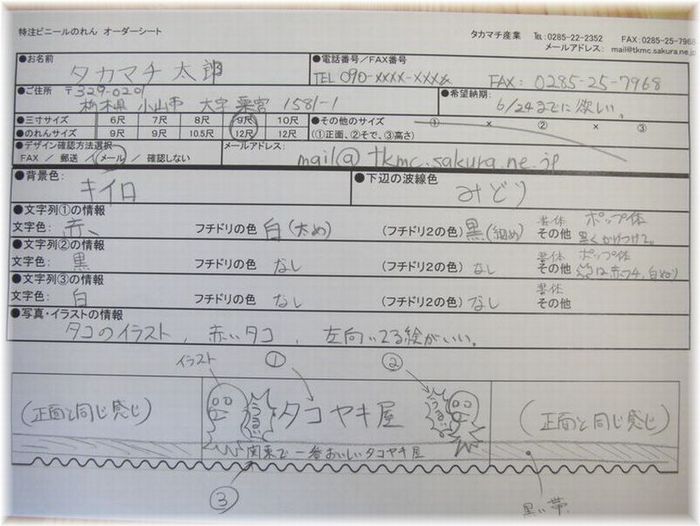 特注ビニールのれん オーダーシート
タカマチ産業 TEL:0285-22-2352 FAX:0285-25-7968
メールアドレス: mail@tkmc.sakura.ne.jp
●お名前 ●電話番号/FAX番号
タカマチ 太郎 TEL 090-xxxx-xxxx FAX: 0285-25-7968
●ご住所 〒329-0201 ●希望納期:
栃木県 小山市 大字 粟宮 1581-1 6/24までに欲しい。
●三寸サイズ 6尺 7尺 8尺 9尺 10尺 ●その他のサイズ ① × ② × ③
●のれんサイズ 9尺 9尺 10.5尺 12尺 12尺 (①正面、②そで、③高さ)
●デザイン確認方法選択 メールアドレス:
FAX / 郵送 / メール / 確認しない mail@tkmc.sakura.ne.jp
●背景色: キイロ ●下辺の波線色 みどり
●文字列①の情報 書体 ポップ体
文字色: 赤、 フチドリの色 白(太め) (フチドリ2の色) 黒(細め) その他 黒くかげつけて。
●文字列②の情報 書体 ポップ体
文字色: 黒 フチドリの色 なし (フチドリ2の色) なし その他
●文字列③の情報 書体
文字色: 白 フチドリの色 なし (フチドリ2の色) なし その他
●写真・イラストの情報
タコのイラスト、赤いタコ、左向いてる絵がいい。
イラスト ① ②
(正面と同じ感じ) タコヤキ屋 (正面と同じ感じ)
関東で一番おいしいタコヤキ屋
③ 黒い帯